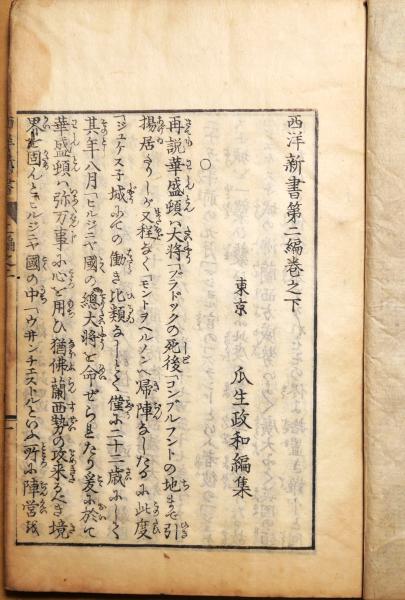 西洋新書第二編巻之下
東京 瓜生政和編集
○
再説華盛頓ハ大将「ブラドックの死後「コンブルラントの地まで引
揚居たりしが又程なく「モントヲヘルノンへ帰陣なしたるに此度
「ジュケス子城にての働き比類なしとて僅に二十三歳にして
其年八月「ビルジニヤ國の總大将を命ぜられたり爰に於て
華盛頓ハ弥万事に心を用ひ猶佛蘭西勢の攻来るべき境
界を固んと「ビルジニヤ國の中「ウ井ンチエストルといふ所に陣営を